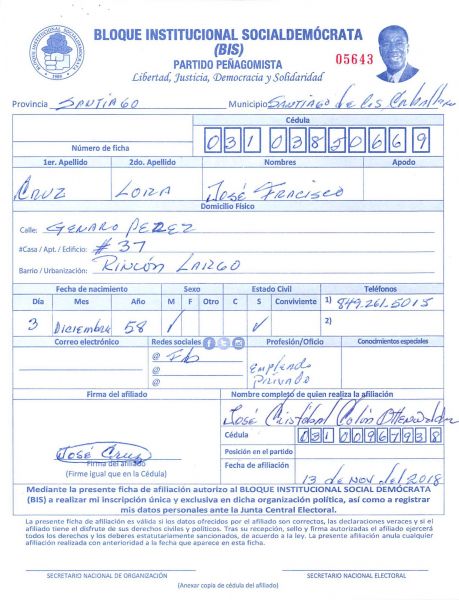 BLOQUE INSTITUCIONAL SOCIALDEMÓCRATA
(BIS)
PARTIDO PEÑAGOMISTA
Libertad, Justicia, Democracia y Solidaridad
05643
BLOQUE INSTITUCIONAL SOCIALDEMOCRATA
Provincia SANTIAGO Municipio SANTIAGO de los Caballeros
Cédula
Número de ficha 031 0385066 9
1er. Apellido 2do. Apellido Nombres Apodo
CRUZ LORA JOSÉ FRACISCO
Domicilio Físico
Calle: GENARO PEREZ
#Casa / Apt. / Edificio: # 37
Barrio / Urbanización: RINCÓN LARGO
Fecha de nacimiento Sexo Estado Civil Teléfonos
Día Mes Año M F Otro C S Conviviente 1) 849.261.5015
3 Diciembre 58 ✓ ✓ 2)
Correo electrónico Redes sociales Profesión/Oficio Conocimientos especiales
@ Fb
@ Empleado
@ Privado
Firma del afiliado Nombre completo de quien realiza la afiliación
José Cristóbal Colón
Cédula
José Cruz
Posición en el partido
Firma del afiliado
(Firme igual que en la Cédula)
Fecha de afiliación
13 de Nov del 2018
Mediante la presente ficha de afiliación autorizo al BLOQUE INSTITUCIONAL SOCIAL DEMÓCRATA
(BIS) a realizar mi inscripción única y exclusiva en dicha organización política, así como a registrar
mis datos personales ante la Junta Central Electoral.
La presente ficha de afiliación es válida si los datos ofrecidos por el afiliado son correctos, las declaraciones veraces y si el
afiliado tiene el disfrute de sus derechos civiles y políticos. Tras su recepción, sello y firma autorizadas el afiliado ejercerá
todos los derechos y los deberes estatutariamente sancionados, de acuerdo a la ley. La presente afiliación anula cualquier
afiliación realizada con anterioridad a la fecha que aparece en esta ficha.
SECRETARIO NACIONAL DE ORGANIZACIÓN SECRETARIO NACIONAL ELECTORAL
(Anexar copia de cédula del afiliado)